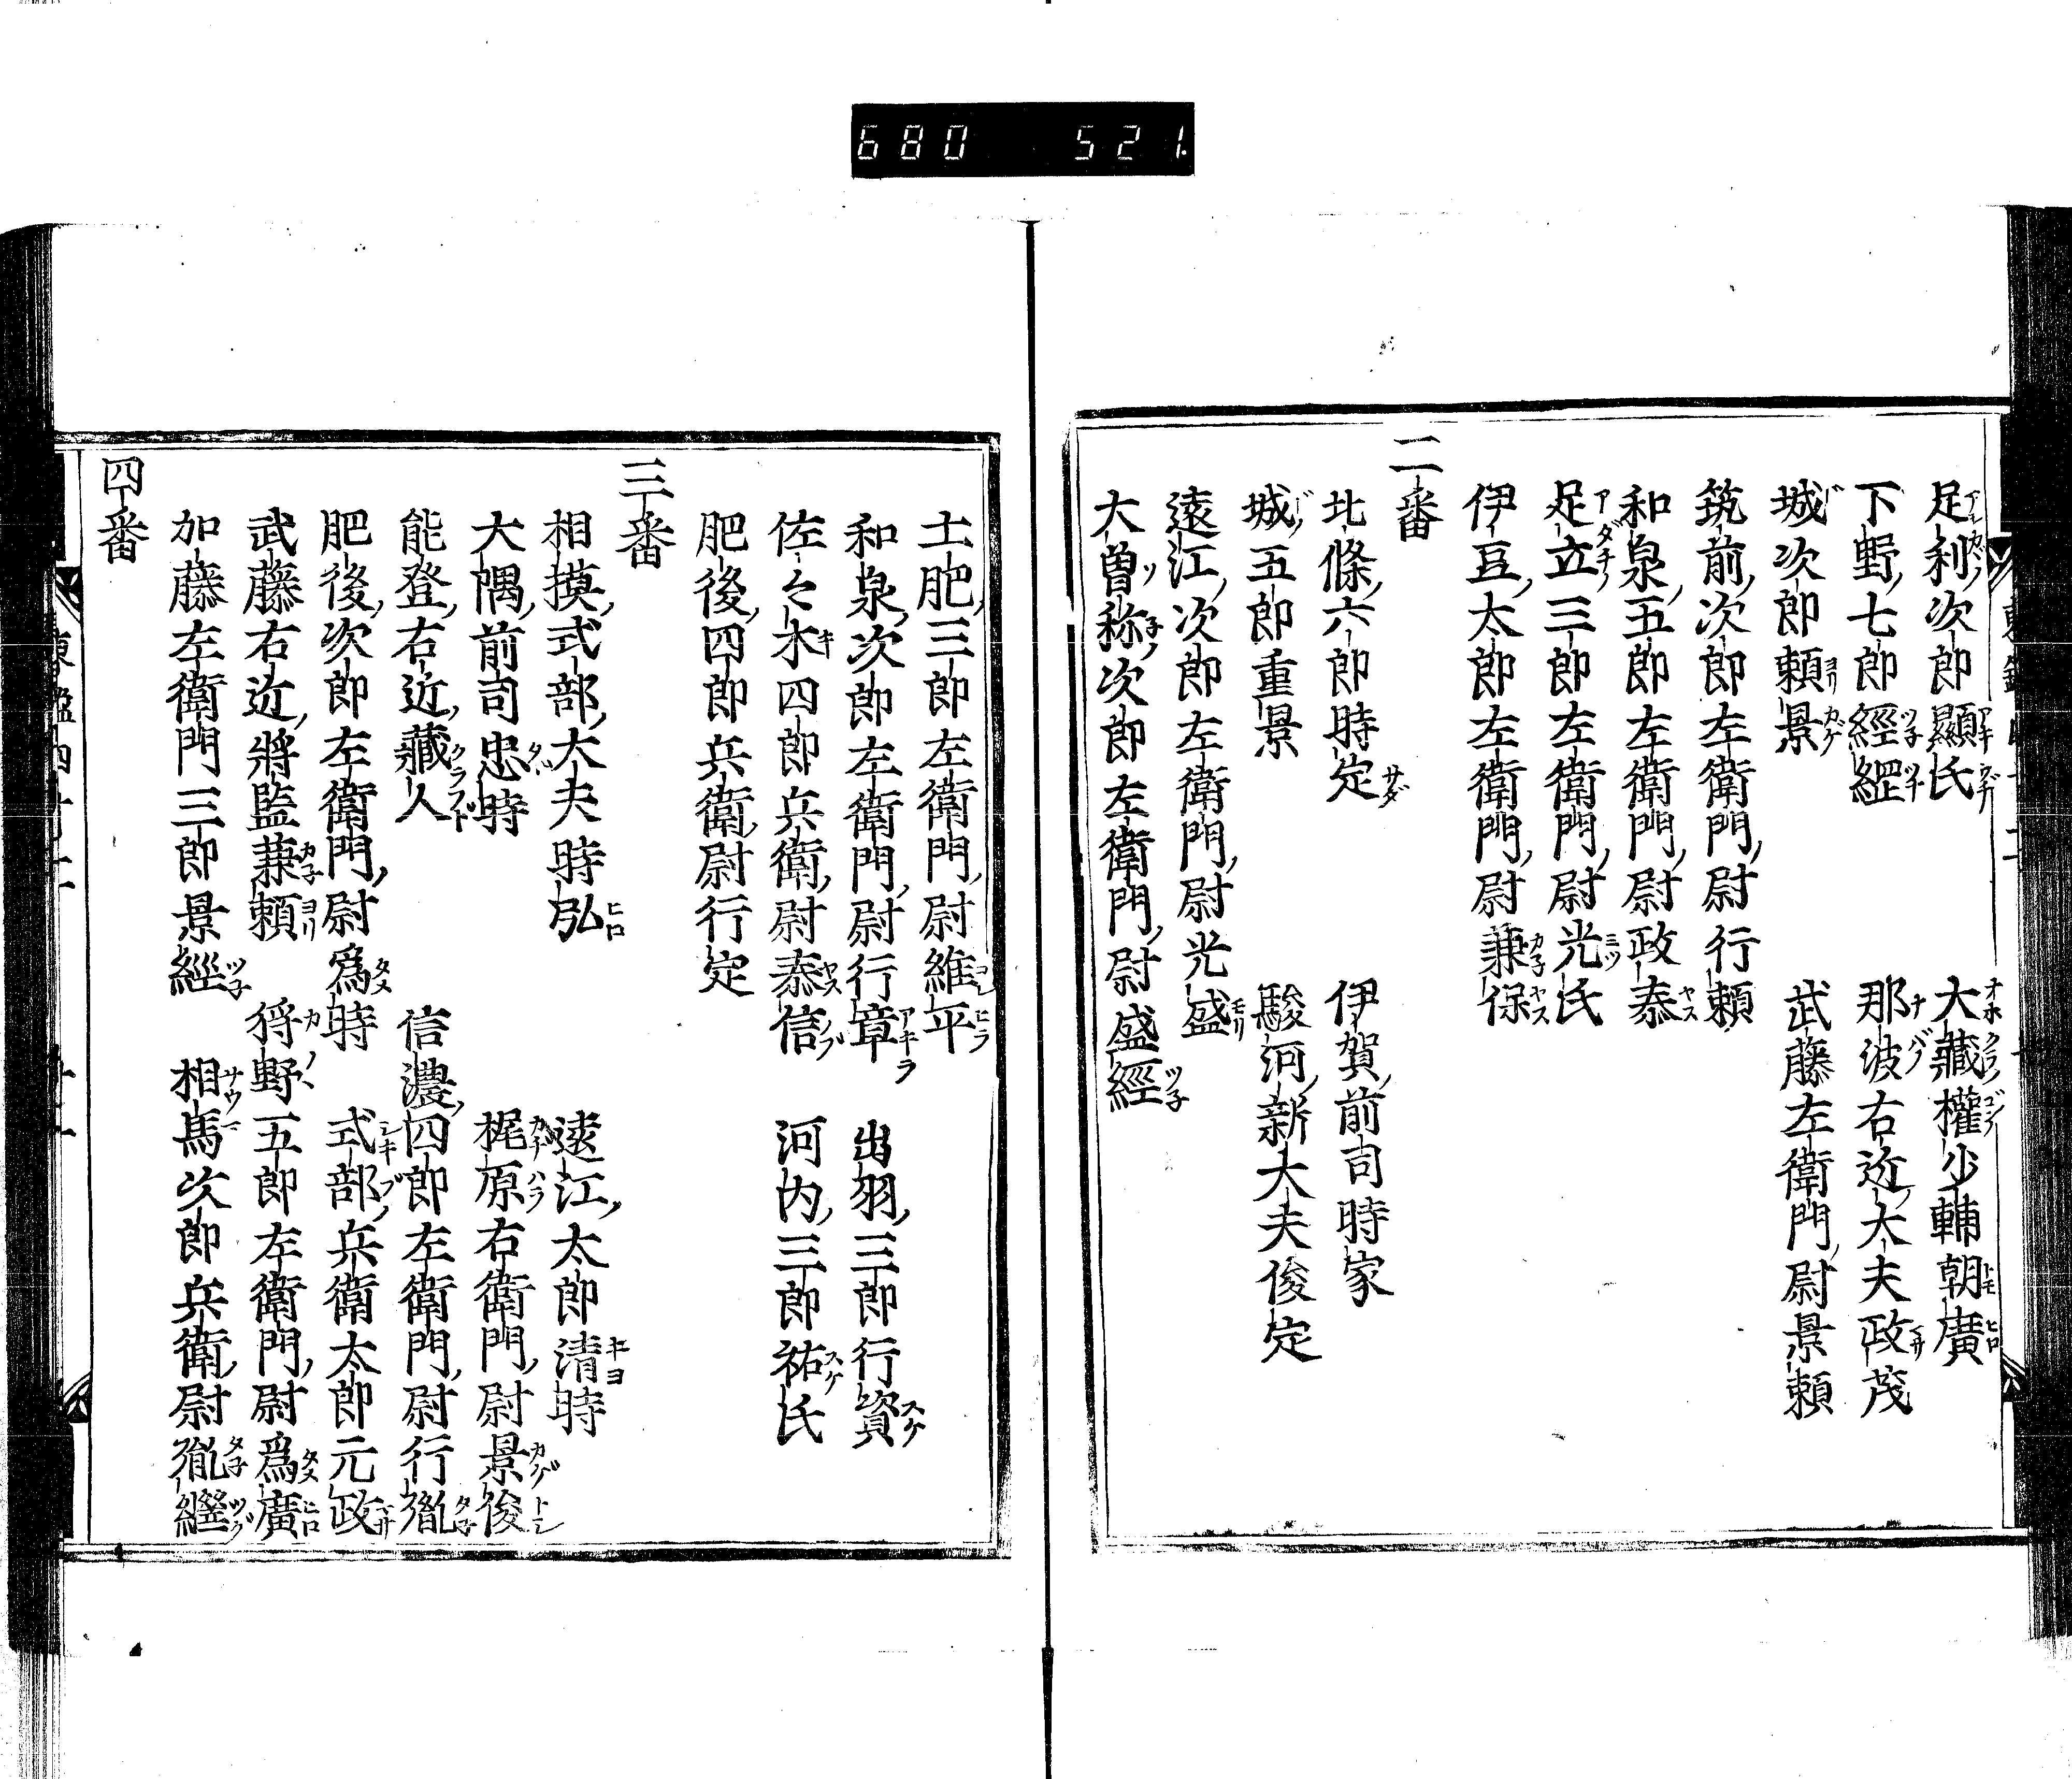 680 521
足利次郎顯氏 大藏權少輔朝廣
下野七郎經經 那波右近大夫政茂
城次郎頼景 武藤左衛門尉景頼
筑前次郎左衛門尉行頼
和泉五郎左衛門尉政泰
足立三郎左衛門尉光氏
伊豆太郎左衛門尉兼保
二番
北條六郎時定 伊賀前司時家
城五郎重景 駿河新大夫俊定
遠江次郎左衛門尉光盛
大曽称次郎左衛門尉盛經
土肥三郎左衛門尉維平
和泉次郎左衛門尉行章 出羽三郎行資
佐々木四郎兵衛尉泰信 河内三郎祐氏
肥後四郎兵衛尉行定
三番
相摸式部大夫時弘 遠江太郎清時
大隅前司忠時 梶原右衛門尉景俊
能登右近藏人 信濃四郎左衛門尉行胤
肥後次郎左衛門尉爲時 式部兵衛太郎元政
武藤右近將監兼頼 狩野五郎左衛門尉爲廣
加藤左衛門三郎景經 相馬次郎兵衛尉胤繼
四番